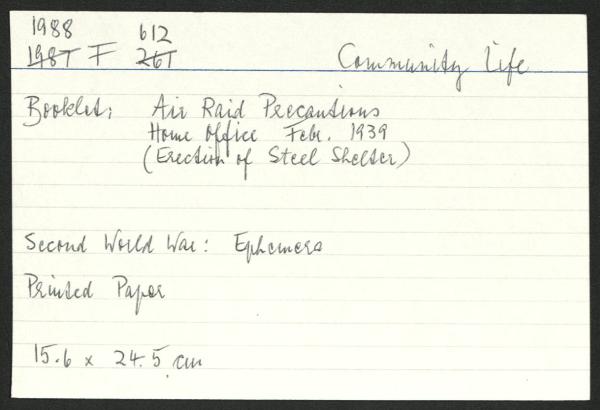 1988 612
198T F 26T Community Life
Booklet: Air Raid Precautions
Home Office Febr. 1939
(Erection of Steel Shelter)
Second World War: Ephemera
Printed Paper
15.6 x 24.5 cm